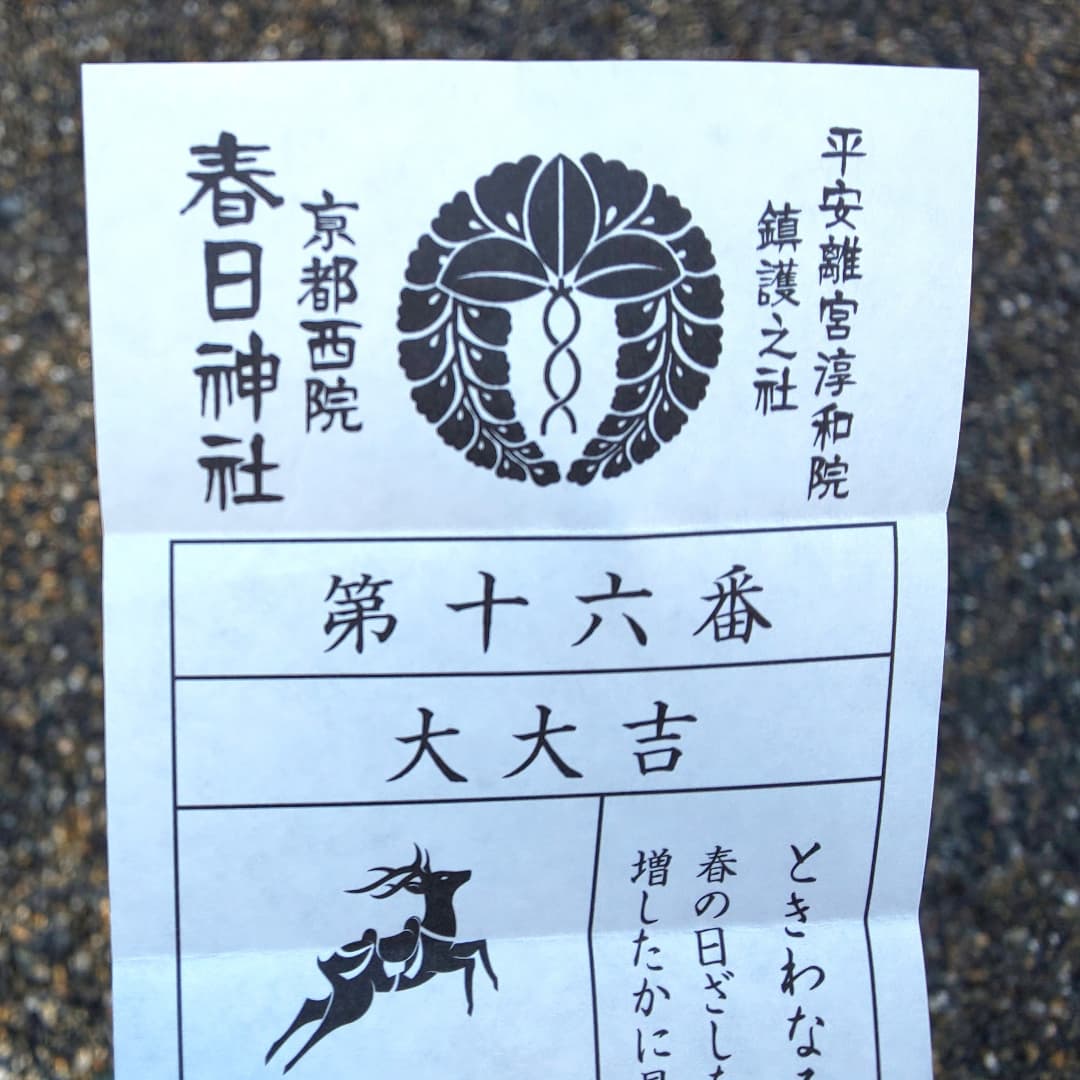 平安離宮淳和院
鎮護之社
京都西院
春日神社
第十六番
大大吉
ときわな
春の日ざし
増したかに